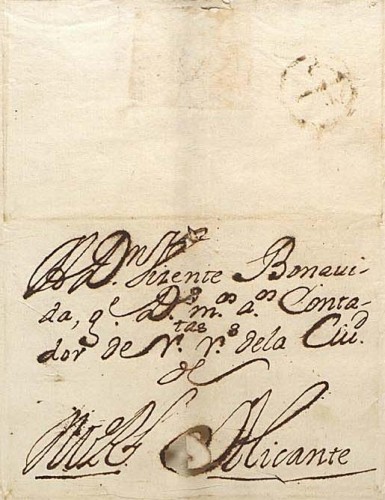 A Dn. Vizente Bonavi-
da, q.e Ds. m.os a.os Conta-
dor de R.tas R.s dela Ciu.d
de
Alicante